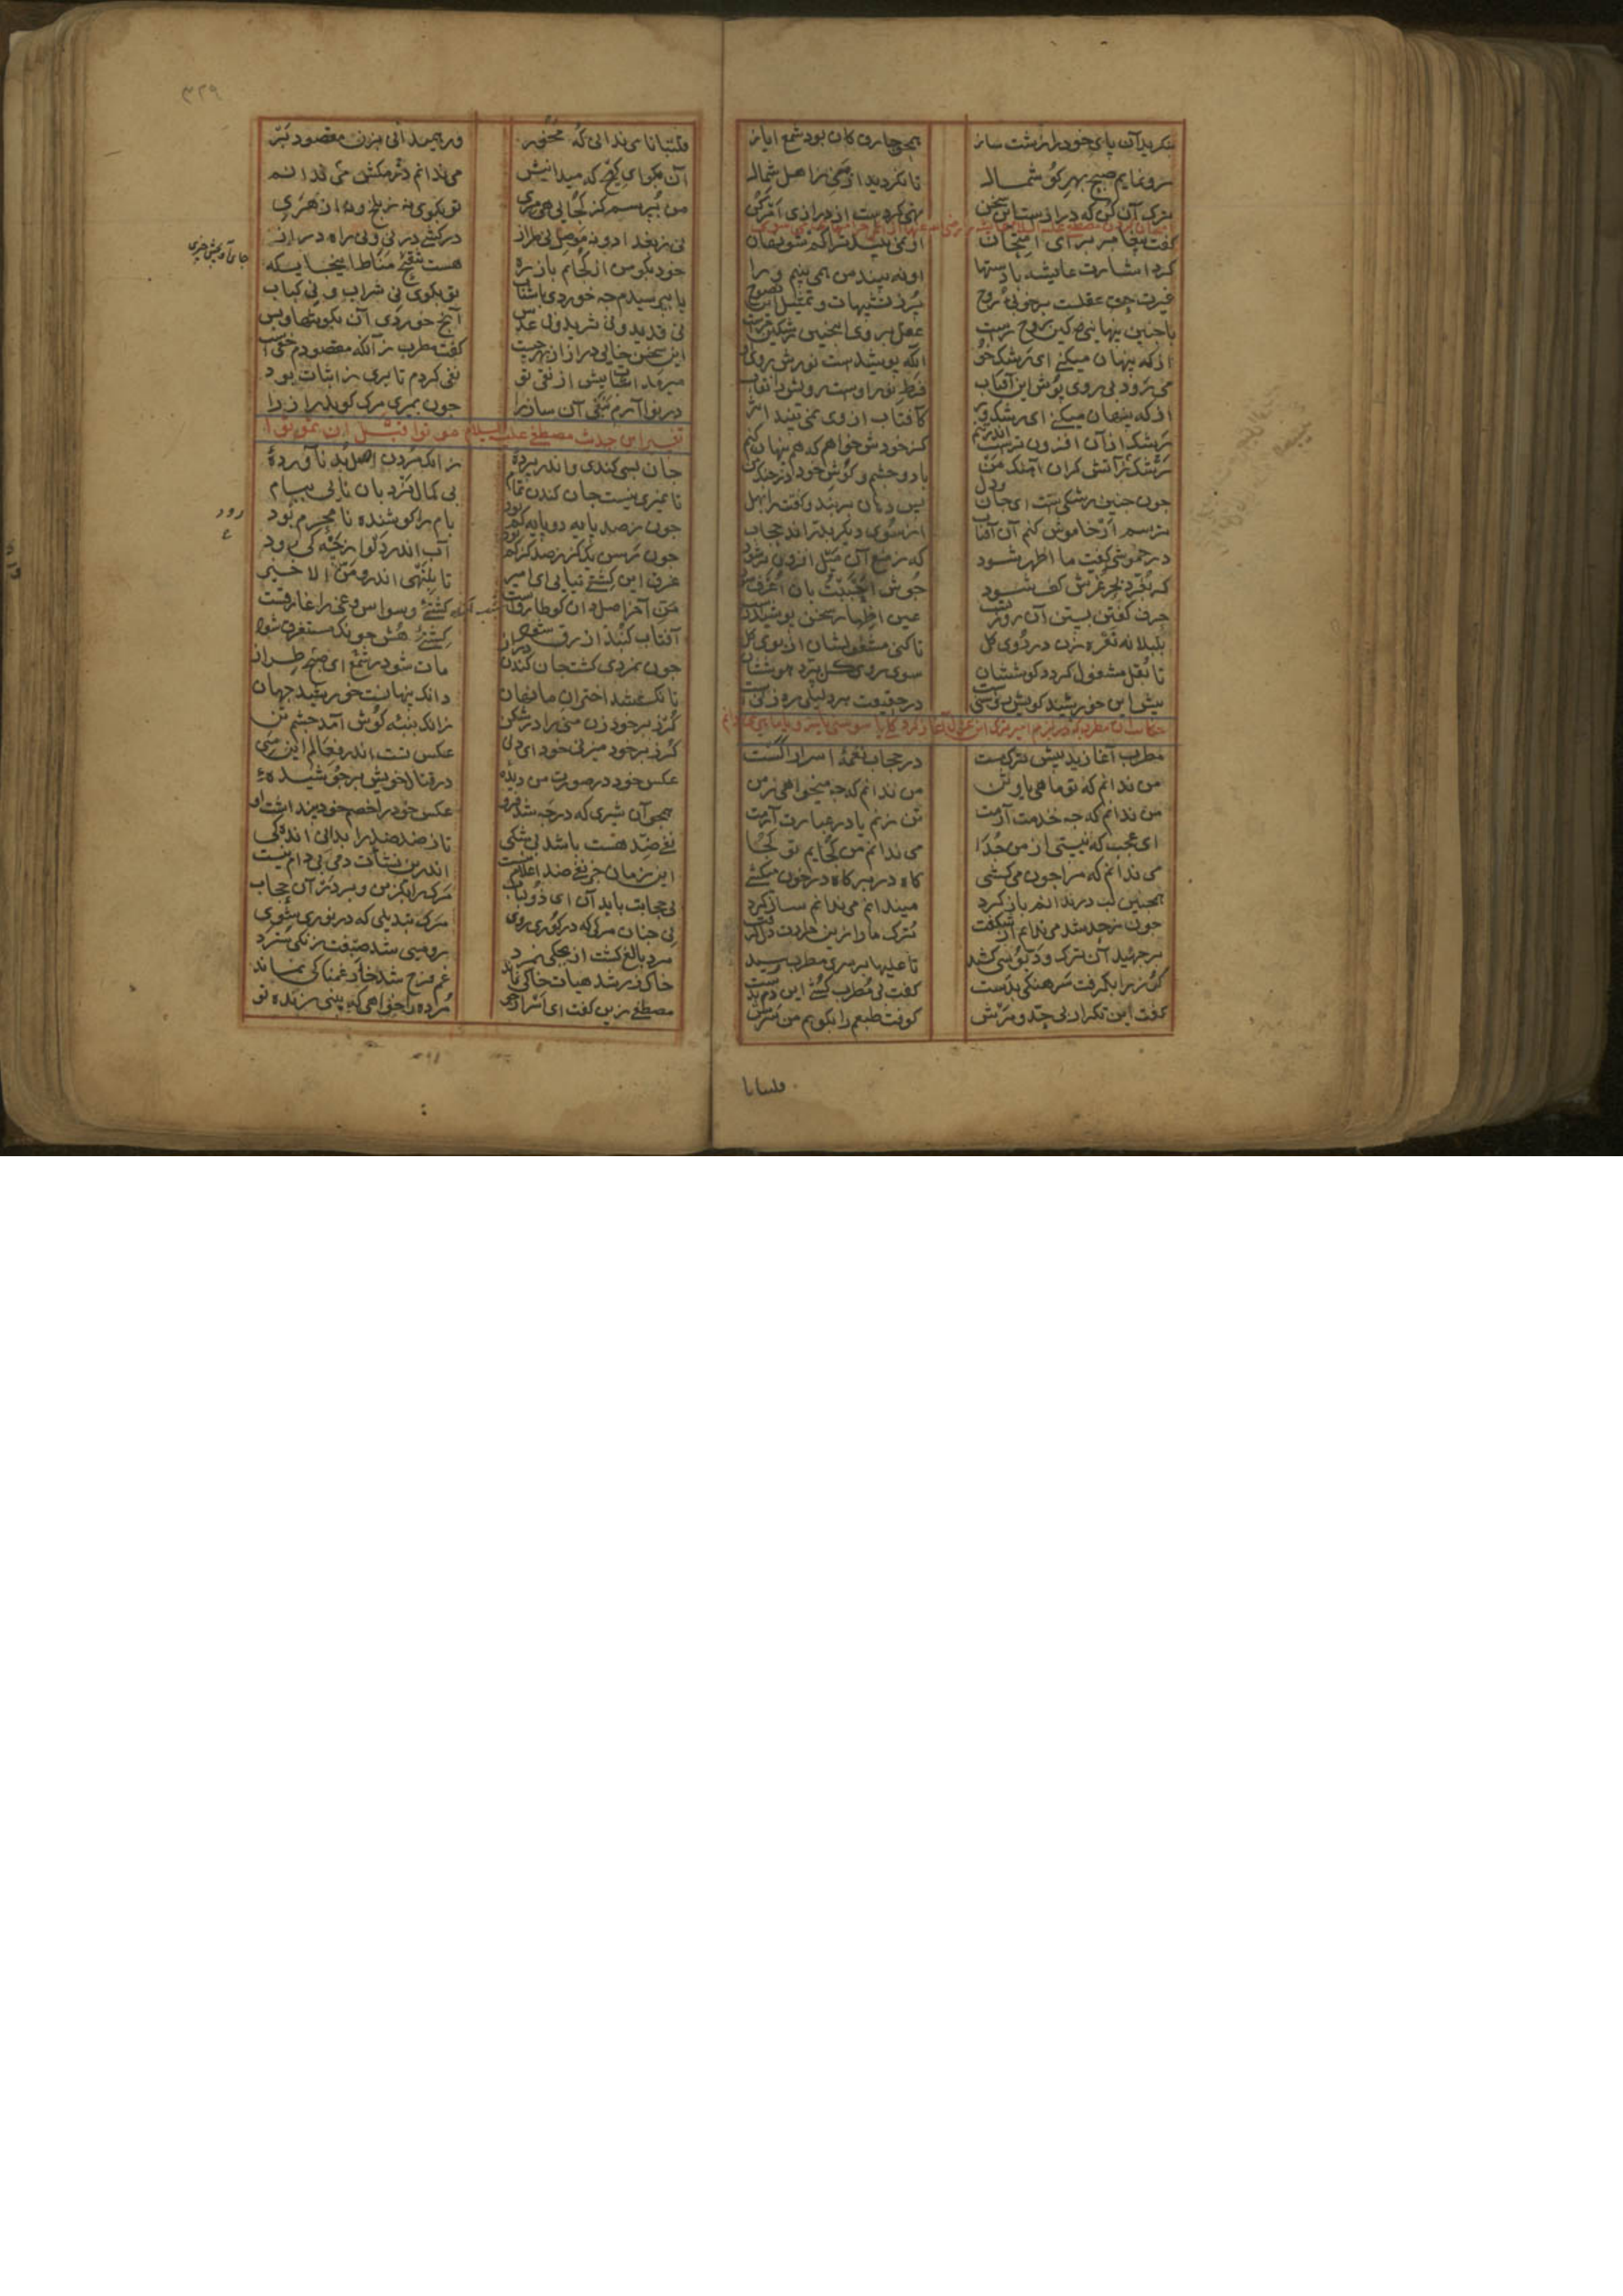 بنکرید آن پای خود را زشت ساز همچو چارق کان بود شمع ایاز
رو نمایم صبح بهر کوشمال تا نکردید از منی ز اهل شمال
ترک آن کن که درازست این سخن نهی کردست از درازی امر کن
کفت پیغامبر برای امتحان او نمی بیند ترا کم شو نهان
کرد اشارت عایشه با دستها او نه بیند من همی بینم ورا
غیرت عقلست بر خوبی روح پر ز تشبیهات و تمثیل این نصوح
با چنین پنهانیی کین روح راست عقل بر وی اینچنین رشکین چراست
از که پنهان میکنی ای رشک خو آنکه پوشیدست نورش روی او
می رود بی روی پوش این آفتاب فرط نور اوست رویش را نقاب
از که پنهان میکنی ای رشک ور کآفتاب از وی نمی بیند اثر
رشک از آن افزون ترست اندر تنم کز خودش خواهم که هم پنهان کنم
ز آتش رشک کران آهنک من با دو چشم و کوش خود در جنک من
چون چنین رشکی ستت ای جان و دل پس دهان بر بند و کفت را بهل
ترسم ار خاموش کنم آن آفتاب از سوی دیکر بدراند حجاب
در خموشی کفت ما اظهر شود که ز منع آن میل افزون تر شود
کر بغرد بحر غرش کف شود جوش احببت بان اعرف شود
حرف کفتن بستن آن روزنست عین اظهار سخن پوشیدنست
بلبلانه نعره زن در روی کل تا کنی مشغولشان از بوی کل
تا بقل مشغول کردد کوششان سوی روی کل نپرد هوششان
پیش این خورشید کو بس روشنی ست در حقیقت هر دلیلی ره زنی ست
مطرب آغازید پیش ترک مست در حجاب نغمه اسرار الست
من ندانم که تو ماهی یا وثن من ندانم که چه میخواهی ز من
من ندانم که چه خدمت آرمت تن زنم یا در عبارت آرمت
ای عجب که نیستی از من جدا می ندانم من کجایم تو کجا
می ندانم که مرا چون می کشی کاه در بر کاه در خون میکشی
همچنین لب در ندانم باز کرد میندانم می ندانم ساز کرد
چون ز حد شد می ندانم از شکفت ترک ما را زین حراره دل کرفت
بر جهید آن ترک و دبوسی کشید تا علیها بر سر مطرب رسید
کرز را بکرفت سرهنکی بدست کفت نی مطرب کشی این دم بدست
کفت این تکرار بی حد و مرش کوفت طبعم را بکوبم من سرش
قلتبانا
۳۲۹
قلتبانا می ندانی که مخور ور همیدانی بزن مقصود بر
آن بکو ای کیج که میدانیش می ندانم می ندانم در مکش
من بپرسم کز کجایی هی مری تو بکوی نه ز بلخ و نه از هری
نی ز بغداد و نه موصل نی طراز در کشی در نی و نی راه دراز
خود بکو من از کجایم باز ره هست تنقیح مناط اینجا بله
یا بپرسیدم چه خوردی ناشتاب تو بکوی نی شراب و نی کباب
نی قدید و نی ثرید و نی عدس آنچ خوردی آن بکو تنها و بس
این سخن خایی دراز از بهر چیست کفت مطرب زانکه مقصودم خفی است
میرمد اثبات پیش از نفی تو نفی کردم تا بری ز اثبات بو
در نوا آرم بنفی آن ساز را چون بمیری مرک کوید راز را
تفسیر این حدیث مصطفی علیه السلام موتوا قبل ان تموتوا
جان بسی کندی و اندر پردهٔ زانک مردن اصل بد ناوردهٔ
تا نمیری نیست جان کندن تمام بی کمال نردبان نایی ببام
چون ز صد پایه دو پایه کم بود بام را کوشنده نامحرم بود
چون رسن یک کز ز صد کز کم بود آب اندر دلو از چه کی رود
غرق این کشتی نیابی ای امیر تا بننهی اندرو من الاخیر
من آخر اصل دان کو طارقست کشتی وسواس و غی را غارقست
آفتاب کنبد ازرق شود کشتی هش چونک مستغرق شود
چون نمردی کشت جان کندن دراز مات شو در شمع ای صبح طراز
تا نکشتند اختران ما نهان دانک پنهانست خورشید جهان
کرز بر خود زن منی را در شکن زانک پنبه کوش آمد چشم تن
کرز بر خود میزنی خود ای دنی عکس تست اندر فعالم این منی
عکس خود در صورت من دیدهٔ در قتال خویش بر جوشیدهٔ
همچو آن شیری که در چه شد فرو عکس خود را خصم خود پنداشت او
نفی ضد هست باشد بی شکی تا ز ضد ضد را بدانی اندکی
این زمان جز نفی ضد اعلام نیست اندرین نشأت دمی بی دام نیست
بی حجابت باید آن ای ذو لباب مرک را بکزین و بر در آن حجاب
نی چنان مرکی که در کوری روی مرک تبدیلی که در نوری شوی
مرد بالغ کشت آن بچکی بمرد رومیی شد صبغت زنکی سترد
خاک زر شد هیات خاکی نماند غم فرح شد خار غمناکی نماند
مصطفی زین کفت ای اسرارجو مرده را خواهی که بینی زنده تو